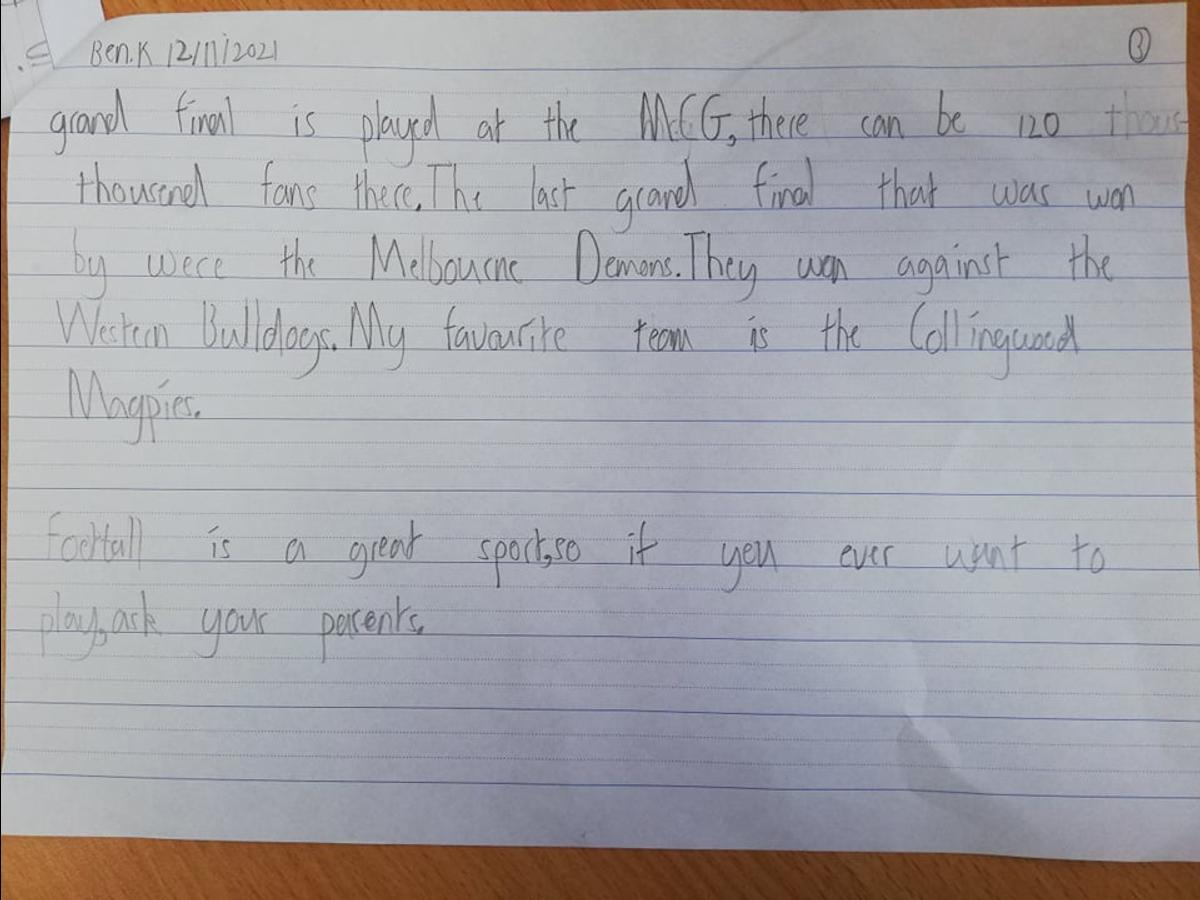 Ben.K 12/11/2021 3
grand final is played at the MCG, there can be 120 thous-
thousend fans there. The last grand final that was won
by were the Melbourne Demons. They won against the
Western Bulldogs. My favourite team is the Collingwood
Magpies.
Football is a great sport, so if you ever want to
play, ask your parents.